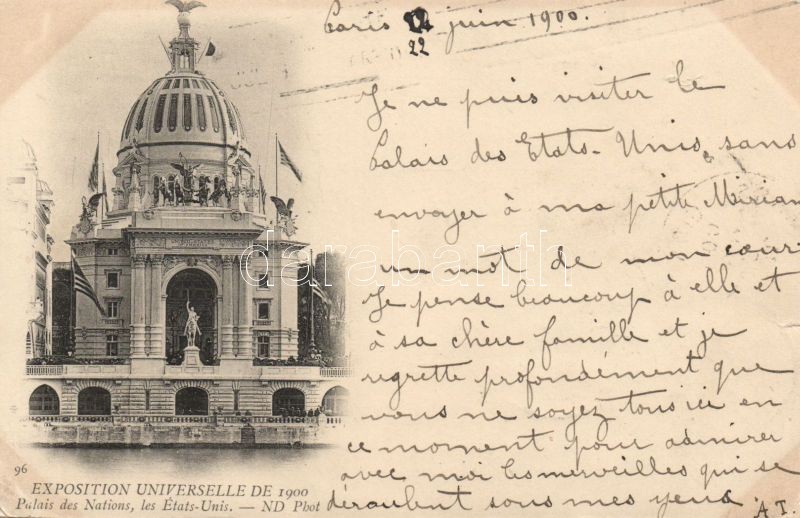 Paris 22 juin 1900.
Je ne puis visiter le
Palais des Etats-Unis, sans
envoyer à ma petite Miriam
un mot de mon cœur.
Je pense beaucoup à elle et
à sa chère famille et je
regrette profondément que
vous ne soyez tous ici en
ce moment pour admirer
avec moi les merveilles qui se
déroulent sous mes yeux
A T.
darabanth
96
EXPOSITION UNIVERSELLE DE 1900
Palais des Nations, les États-Unis. — ND Phot